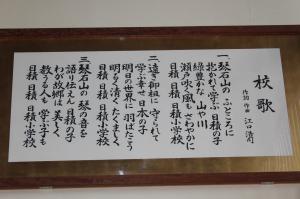 校歌
作詞 作曲 江口浩司
一、琴石山の ふところに
抱かれて学ぶ 日積の子
緑豊かな 山や川
瀬戸吹く風も さわやかに
日積 日積 日積小学校
二、遠き御祖に 守られて
学ぶ幸せ 日本の子
明日の世界に 羽ばたこう
明るく清く たくましく
日積 日積 日積小学校
三、琴石山の 琴の音を
語り伝えん 日積の子
わが故郷は 美しく
教うる人も 学ぶ子も
日積 日積 日積小学校